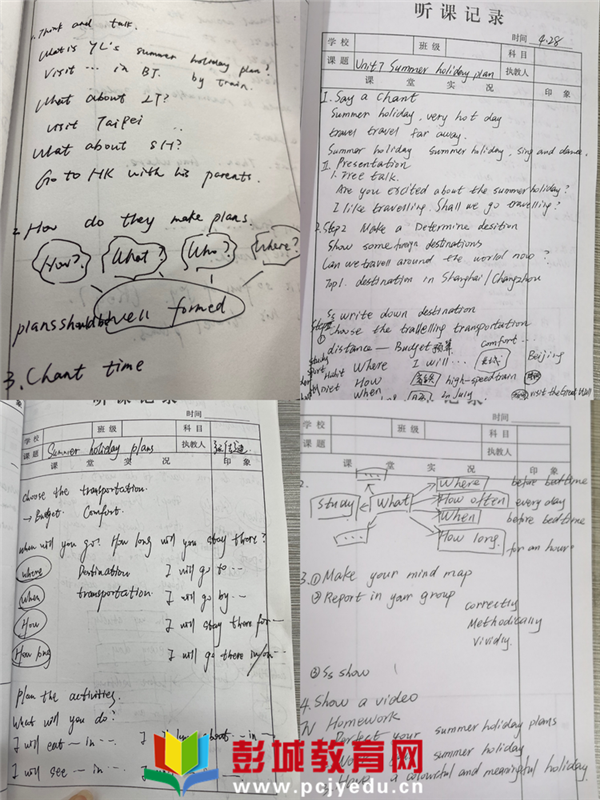 1. Think and talk.
What is YL's summer holiday plan?
Visit ... in BJ. by train.
What about LT?
visit Taipei
What about SH?
Go to HK with his parents.
2. How do they make plans.
How? What? Who? Where?
plans should be well formed
3. Chant time
听课记录
时间 4.28
学校 班级 科目
课题 Unit 7 Summer holiday plan 执教人
课堂实况 印象
I. Say a chant
Summer holiday, very hot day
travel travel far away.
Summer holiday summer holiday, sing and dance.
II. Presentation
1. Free talk.
Are you excited about the summer holiday?
I like travelling. Shall we go travelling?
2. Step 2 Make a Determine desition
Show some foreign destinations
Can we travell around the world now?
Top1. destination in Shanghai/Changzhou
Ss write down destination
the travelling transportation
distance — Budget 预算 comfort...
Where I will... Beijing
How high-speed train
When in July visit the Great Wall
听课记录
时间
学校 班级 科目
课题 Summer holiday plans 执教人
课堂实况 印象
choose the transportation.
→ Budget. Comfort.
when will you go? How long will you stay there?
where Destination I will go to ...
when transportation. I will go by ...
How I will stay there for ...
How long I will go there in/on ...
plan the activities.
What will you do?
I will eat — in ...
I will see — in ...
时间
学校 班级 科目
课题 执教人
课堂实况 印象
2. Where before bedtime
study What How often every day
When before bedtime
How long for an hour
3. ① Make your mind map
② Report in your group
correctly
Methodically
Vividly.
③ Ss show
4. Show a video
IV Homework
Perfect your summer holiday plans
summer holiday
Have a colourful and meaningful holiday.
彭城教育网
www.pcjyedu.cn